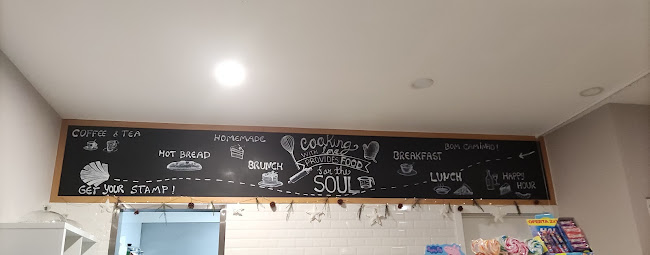 COFFEE & TEA
HOT BREAD
HOMEMADE
BRUNCH
Cooking
WITH love
PROVIDES FOOD
for the
SOUL
BREAKFAST
BOM CAMIÑO!
LUNCH
HAPPY
HOUR
GET YOUR STAMP!
OFERTA